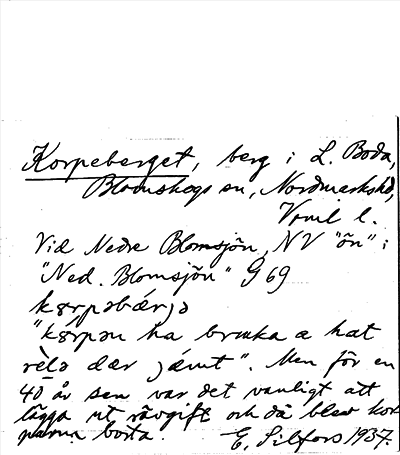 Korpeberget, berg i L. Boda,
Blomskogs sn, Nordmarks hd,
Vrml l.
Vid Nedre Blomsjön, NV "ön" i
"Ned. Blomsjön" G 69
kɷrpəbǽrjə
"kɷ́rpən ha bruka a hat
rèlə dær jǽmt". Men för en
40 år sen var det vanligt att
lägga ut rävgift och då blev kor
parna borta. E. Silfors 1937.